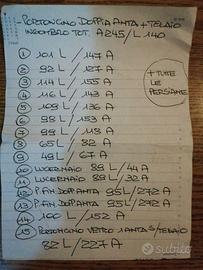 - PORTONCINO DOPPIA ANTA + TELAIO
INGOMBRO TOT. A245/L 140
1 101 L/147 A
2 92 L/127 A
3 114 L/155 A
4 116 L/143 A
5 109 L/136 A
6 98 L/153 A
7 99 L/118 A
8 65 L/82 A
9 49 L/67 A
+ TUTTE
LE
PERSIANE
10 LUCERNAIO 89 L/44 A
11 LUCERNAIO 89 L/32 A
12 P.FIN DOP.ANTA 95L/272 A
13 P.FIN DOP.ANTA 95L/292 A
14 100 L/152 A
15 PORTONCINO VETRO 1 ANTA S/TELAIO
82 L/227 A
subito